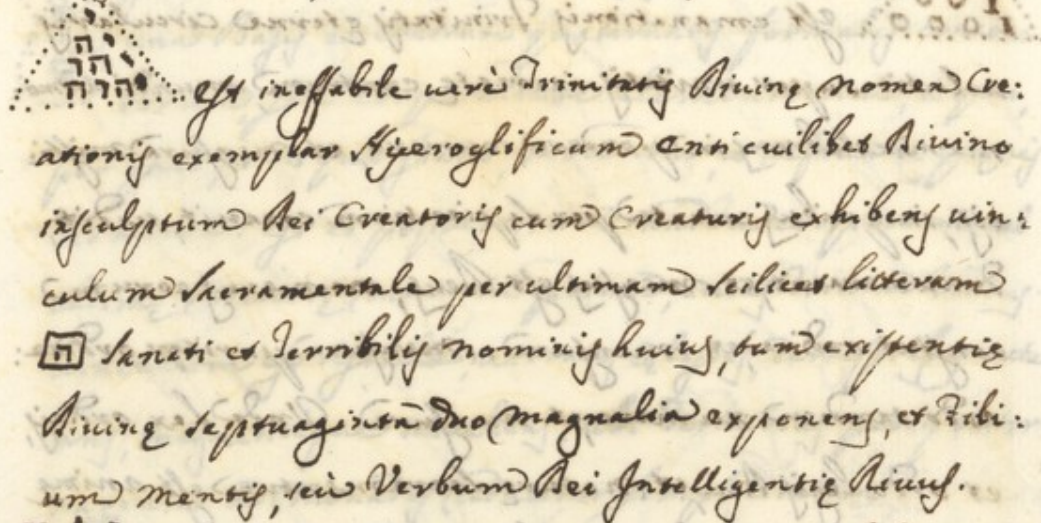 י
יה
יהו
יהוה est ineffabile verè Trinitatis Divinę Nomen Cre:
ationis exemplar Hyeroglificum Enti cuilibet Divino
insculptum Dei Creatoris cum Creaturis exhibens vin:
culum Sacramentale per ultimam scilicet litteram
ה Sancti et Terribilis nominis huius, tum existentię
Divinę septuaginta duo magnalia exponens, et
um Mentis, seù Verbum Dei Intelligentię